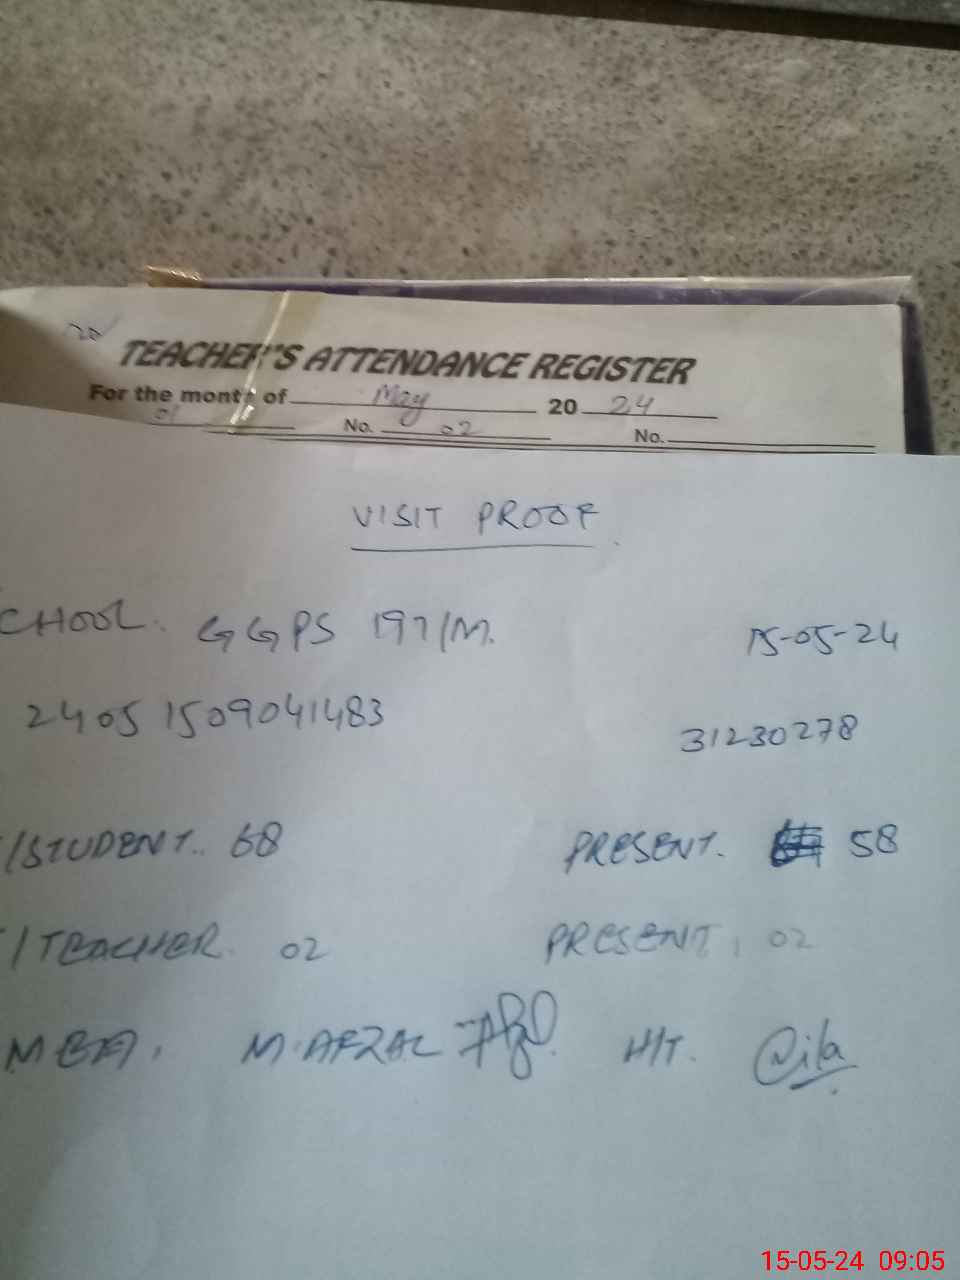 20
TEACHER'S ATTENDANCE REGISTER
For the month of May 20 24
01 No. 02 No.
VISIT PROOF
CHOOL. GGPS 197/M. 15-05-24
24051509041483 31230278
/STUDENT.. 68 PRESENT. 58
/TEACHER. 02 PRESENT. 02
MEA. M. AFZAL H/T.
15-05-24 09:05